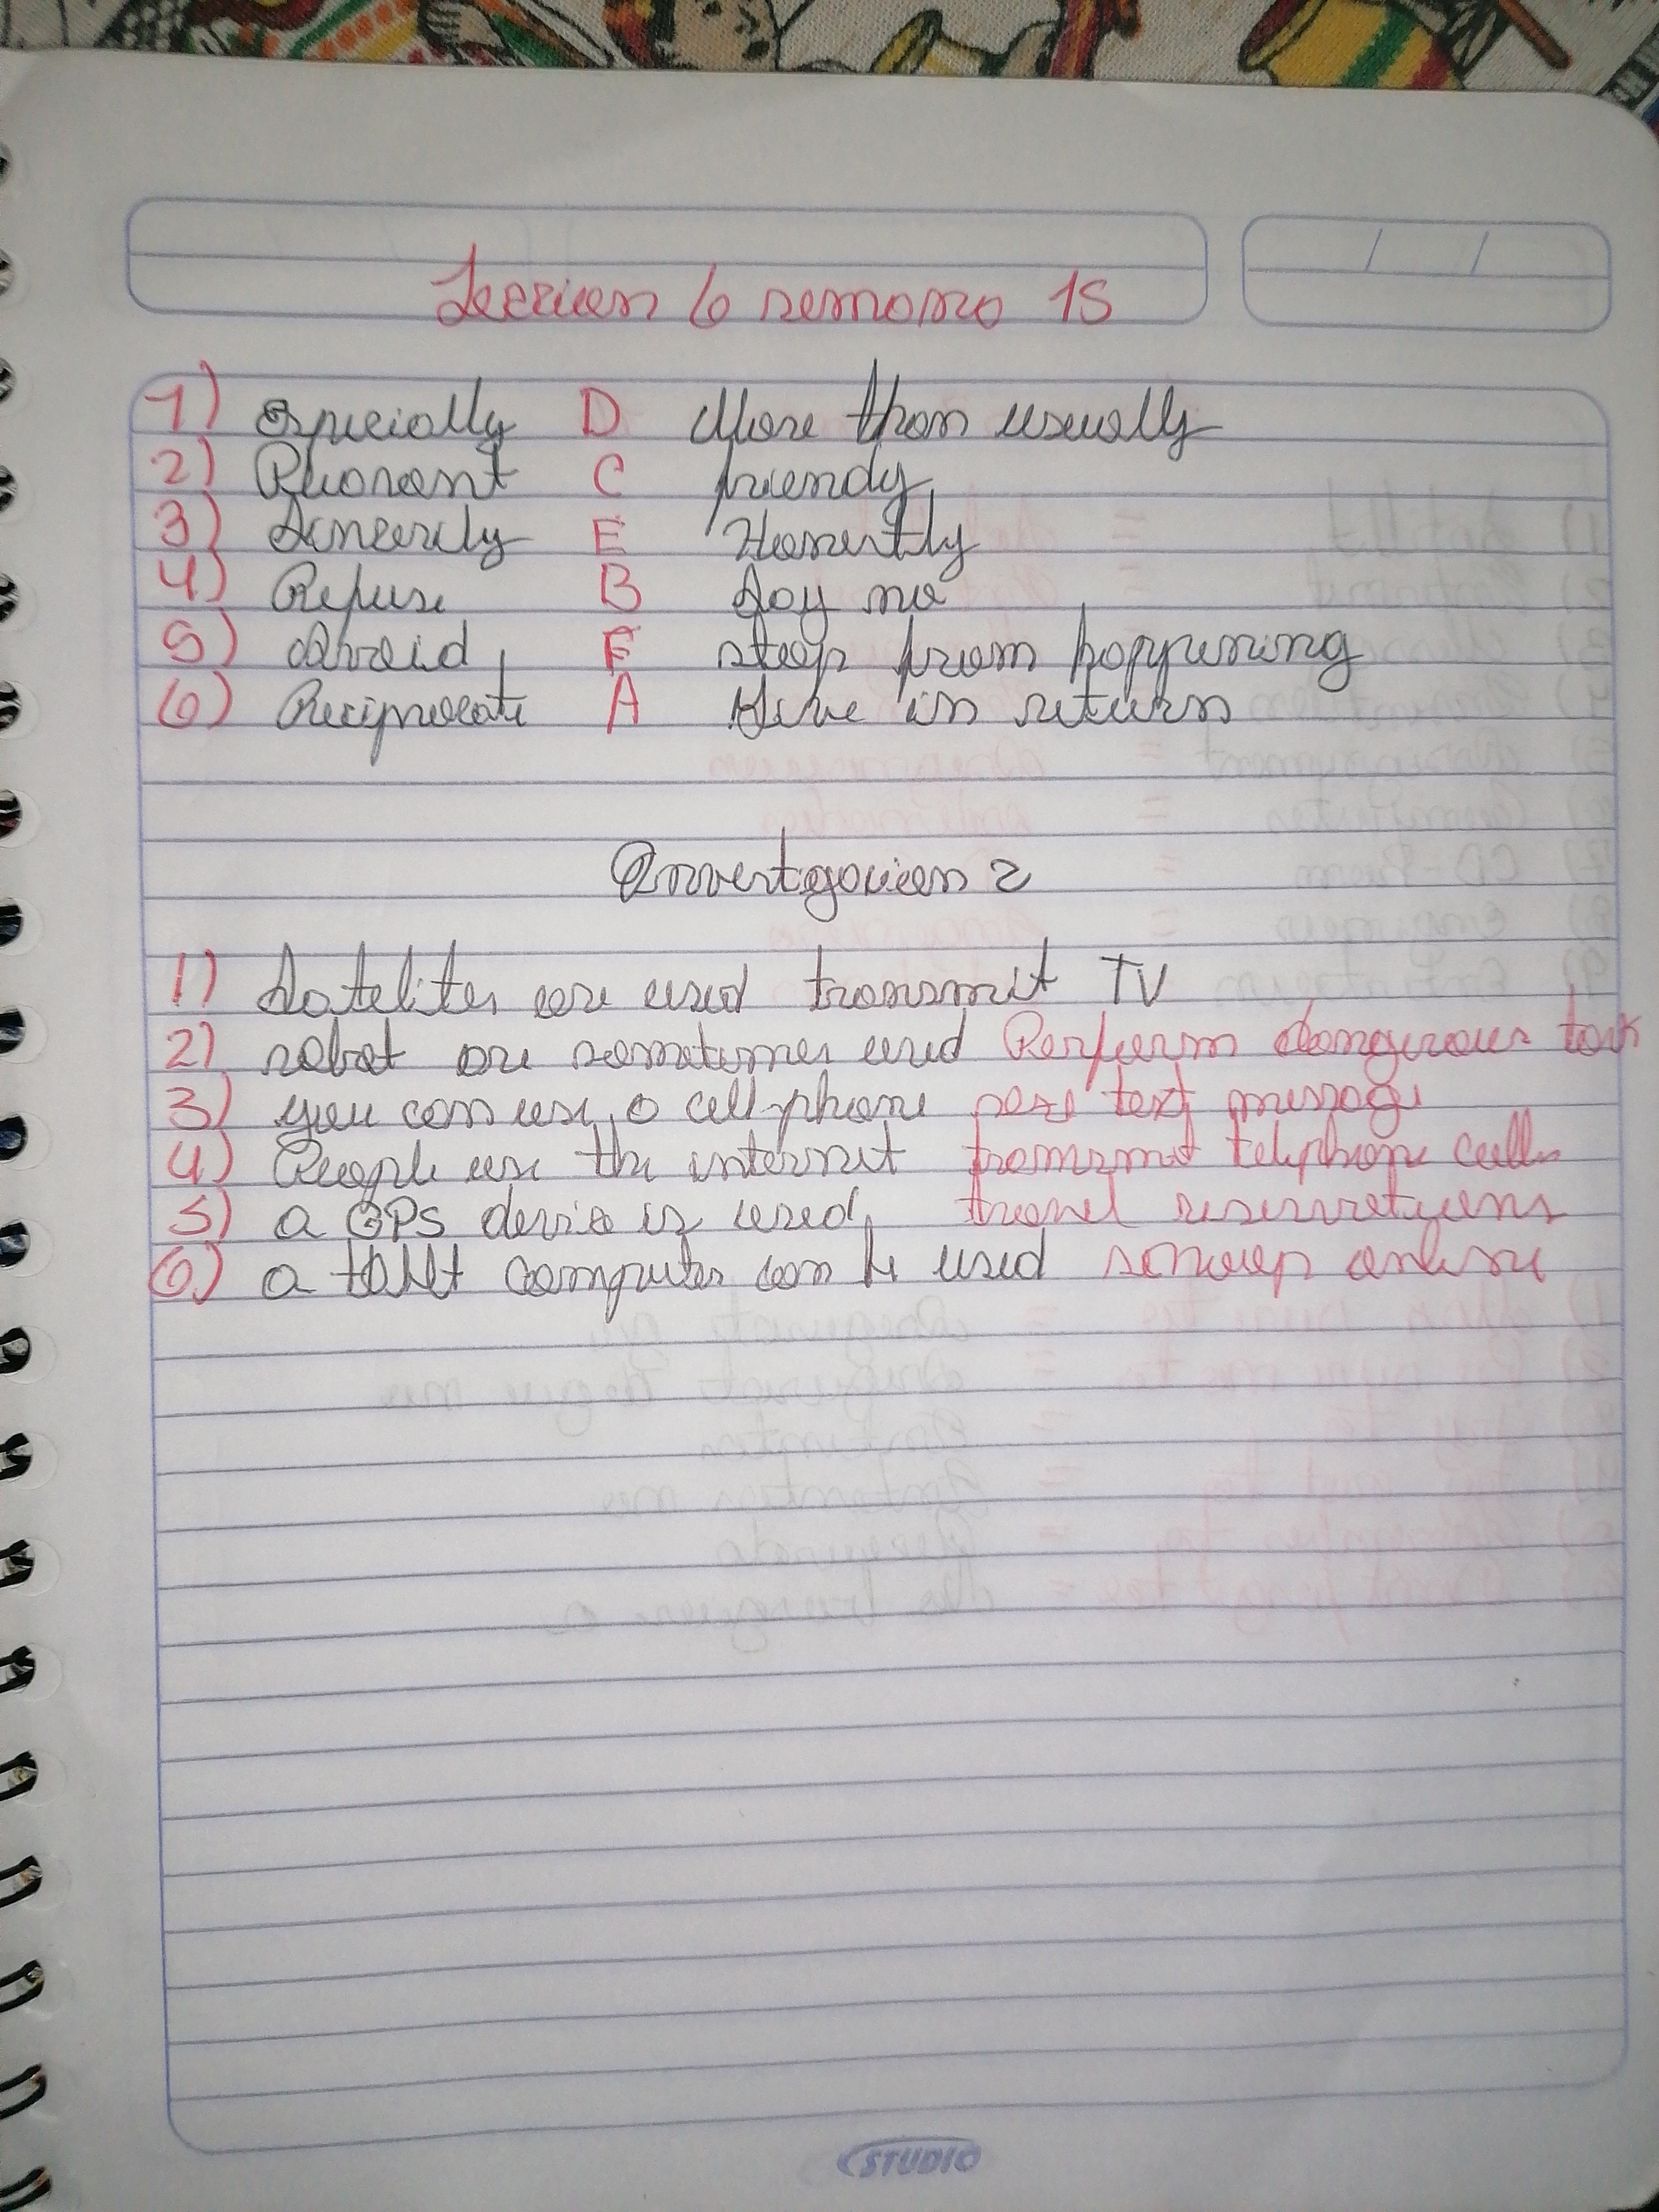 Leccion 6 semana 15
1) Especially D More than usually
2) C friendy
3) Sincerily E Honestly
4) Refuse B Say no
5) Avoid F stop from happening
6) Reciprocate A Give in return
Investigacion 2
1) Satelites are used transmit TV
2) robot are sometimes used Perform dangerous task
3) you can use a cell phone text message
4) People use the internet transmit telephone calls
5) a GPS device is used travel reservations
6) a computer can be used online
STUDIO